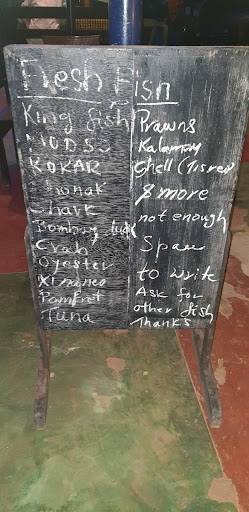 Fresh Fish
King fish
MODSO
KOKAR
Chonak
Shark
Bombay duck
Crab
Oyester
Pamfret
Tuna
Prawns
Kalamary
Shell (Tisreo
& more
not enough
Space
to write
Ask for
other fish
Thanks